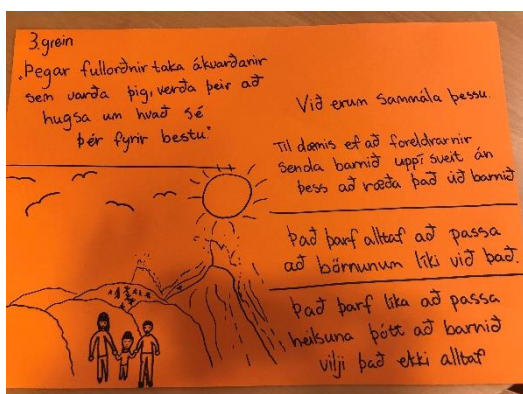 3. grein
"Þegar fullorðnir taka ákvarðanir
sem varða þig, verða þeir að
hugsa um hvað sé
þér fyrir bestu."
Við erum sammála þessu.
Til dæmis ef að foreldrarnir
senda barnið uppí sveit án
þess að ræða það við barnið
Það þarf alltaf að passa
að börnunum líki við það.
Það þarf líka að passa
heilsuna þótt að barnið
vilji það ekki alltaf